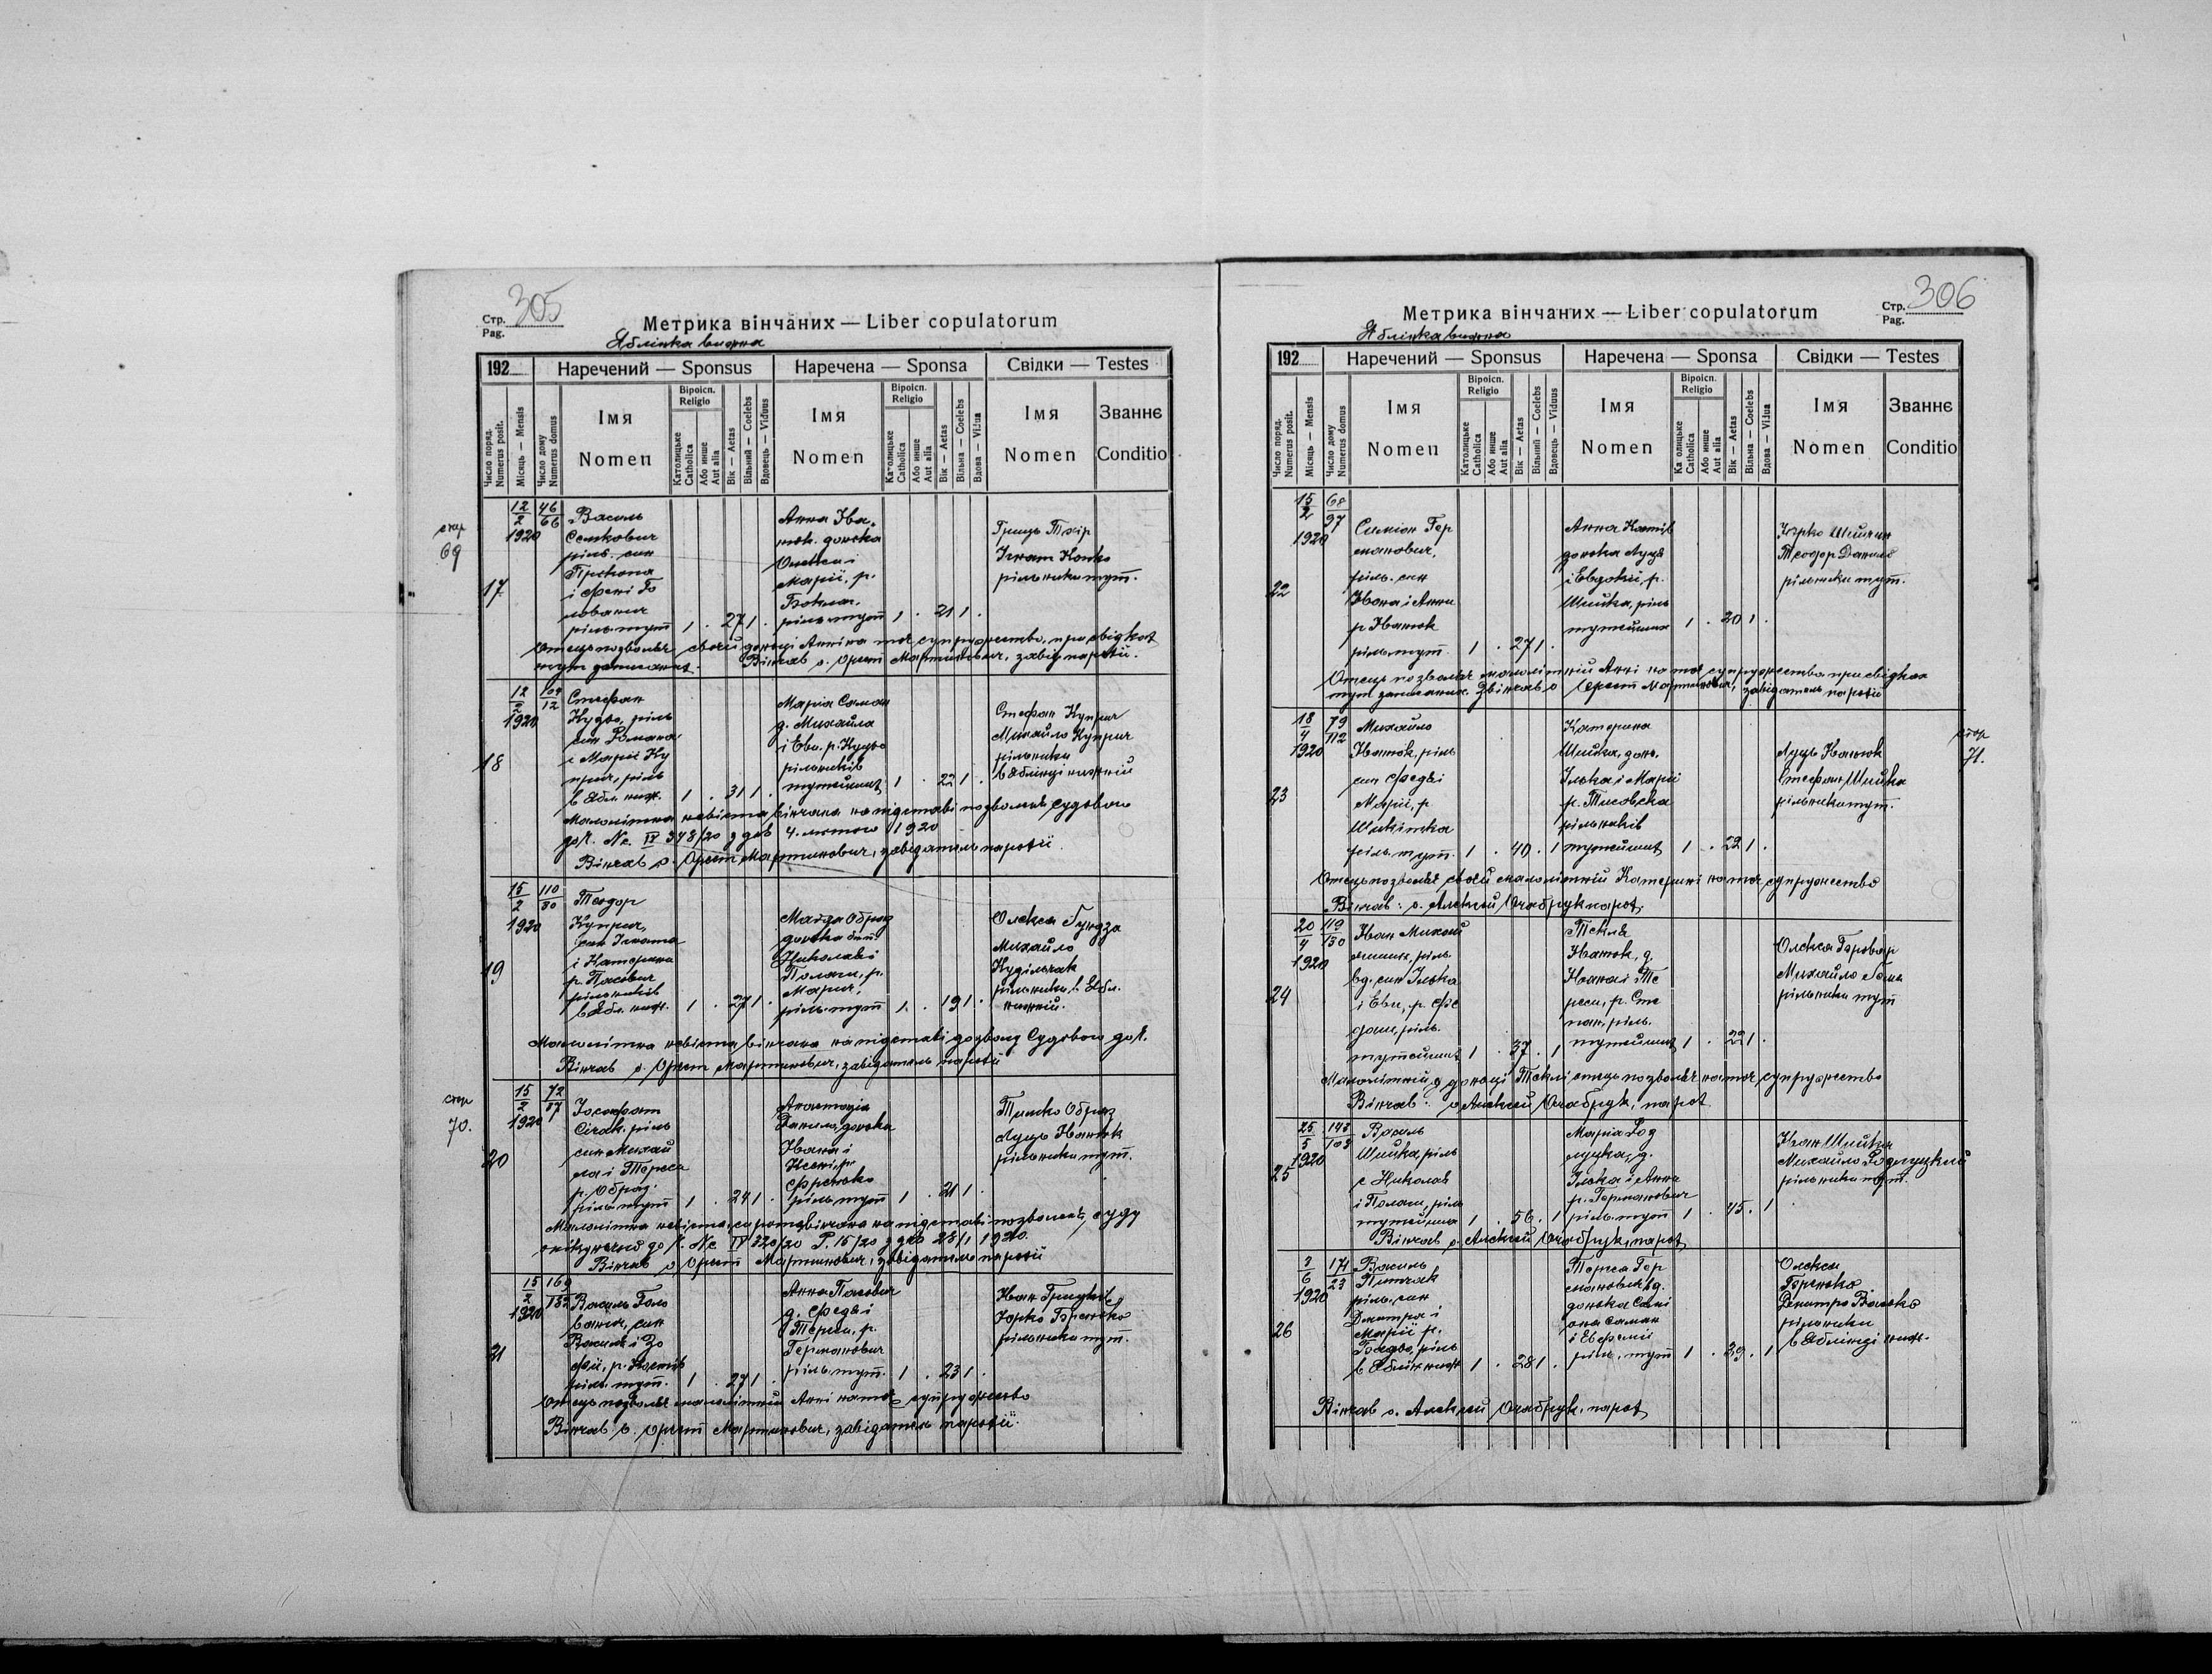 Стр. 305
Pag.
Метрика вінчаних — Liber copulatorum
Яблінка вижна
192
Наречений — Sponsus
Наречена — Sponsa
Свідки — Testes
Число поряд. Numerus posit.
Місяць — Mensis
Число дому Numerus domus
Імя
Nomen
Віроісп. Religio
Католицьке Catholica
Або инше Aut alia
Вік — Aetas
Вільний — Coelebs
Вдовець — Viduus
Імя
Nomen
Віроісп. Religio
Католицьке Catholica
Або инше Aut alia
Вік — Aetas
Вільна — Coelebs
Вдова — Vidua
Імя
Nomen
Званнє
Conditio
стор
69
17
12/2 1920
46/66
Василь
Семкович
ріль. син
Прокопа
ріль. тут 1 . 27 1 .
Анна Іва
нюк. донька
Олекси і
Марії, р.
ріль. тут 1 . 21 1 .
Гриць
Ігнат
рільники тут.
Вінчав о. Орест Мартинович, завід. парохії.
18
12/2 1920
109/12
Стефан
Кудьо, ріль
син Романа
і Марії Ку
прич, ріль
в Ябл. нижн. 1 . 31 1 .
Марія Саман
д. Михайла
і Еви. р. Кудьо
рільників
тутейших 1 . 22 1 .
Стефан Куприч
Михайло Куприч
рільники
в Яблінці нижній
Малолітна невіста вінчана на підставі позволеня судового
до Ч. Nc. IV 348/20 з дня 4. лютого 1920
Вінчав о. Орест Мартинович, завідатель парохії.
19
15/2 1920
110/30
Теодор
Куприч,
син Ігната
і Катерини
р. Пасович
рільників
в Ябл. нижн. 1 . 27 1 .
Магда Образ
донька
Николая і
Полаги, р.
ріль. тут 1 . 19 1 .
Олекса Гундза
Михайло
рільники в Ябл.
нижній.
Малолітна невіста вінчана на підставі дозволу Судового до Ч.
Вінчав о. Орест Мартинович, завідатель парохії
стор
70.
20
15/2 1920
72/87
Йосафат
Січак. ріль
син Михай
ла і Тереси
р. Образ.
ріль. тут 1 . 24 1 .
Анастазія
Данило, донька
Івана і
Ксені, р.
ріль. тут 1 . 21 1 .
Тимко Образ
Луць Іванюк
рільники тут.
Малолітна невіста, сирота вінчана на підставі позволеня суду
опікунчого до Ч. Nc IV 320/20 P. 15/20 з дня 28/1 1920.
Вінчав о. Орест Мартинович, завідатель парохії
21
15/2 1920
169/182
Василь Голо
ванич, син
Василя і Зо
фії, р. Костів
ріль. тут. 1 . 27 1 .
Анна Пасович
д. Федя і
Тереси, р.
Германович
ріль. тут. 1 . 23 1 .
Іван Грицків
Юрко
рільники тут.
Отець позваляє малолітній Анні на тоє супружество
Вінчав о. Орест Мартинович, завідатель парохії.
Стр. 306
Pag.
Метрика вінчаних — Liber copulatorum
Яблінка вижна
192
Наречений — Sponsus
Наречена — Sponsa
Свідки — Testes
Число поряд. Numerus posit.
Місяць — Mensis
Число дому Numerus domus
Імя
Nomen
Віроісп. Religio
Католицьке Catholica
Або инше Aut alia
Вік — Aetas
Вільний — Coelebs
Вдовець — Viduus
Імя
Nomen
Віроісп. Religio
Ка олицьке Catholica
Або инше Aut alia
Вік — Aetas
Вільна — Coelebs
Вдова — Vidua
Імя
Nomen
Званнє
Conditio
22
15/2 1920
68/97
Симеон Гер
манович,
ріль. син
Івана і Анни
р Іванюк
ріль. тут. 1 . 27 1 .
Анна Костів
донька Луця
і Евдокії, р.
Шийка, ріль
тутейших 1 . 20 1 .
Юрко
Теодор Данило
рільники тут.
Отець позваляє малолітній Анні на тоє супружество при свідках
тут записаних. Вінчав о Орест Мартинович, завідатель парохії
23
18/4 1920
79/112
Михайло
Іванюк, ріль
син Федя і
Марії, р
Микитка
ріль. тут. 1 . 40 . 1
Катерина
Шийка, донь.
Ілька і Марії
р. Тисовска
рільників
тутейших 1 . 22 1 .
Луць Іванюк
Стефан Шийка
рільники тут.
стор
71.
Отець позваляє своїй малолітній Катерині на тоє супружество
Вінчав: о. Алексей
24
20/4 1920
119/130
Іван Михай
лишин, ріль
вд. син Ілька
і Еви, р. Фе
тутейших 1 . 37 . 1
Текля
Іванюк, д.
Івана і Те
реси, р. Сте
пан, ріль.
тутейших 1 . 22 1 .
Олекса
Михайло
рільники тут
Малолітній донощі Теклі отець позваляє на тоє супружество
Вінчав: о. Алексей
25
25/5 1920
143/103
Василь
Шийка, ріль
с. Николая
і Полаги, ріль
тутейших 1 . 56 . 1
Марія Под
луцка, д.
Ілька і Анни
р. Германович
ріль. тут 1 . 45 . 1
Іван Шийка
Михайло Подлуцкий
рільники тут.
Вінчав о. Алексей
26
3/6 1920
171/23
Василь
Пинчак
ріль. син
Дмитра і
Марії р.
в Яблін нижн 1 . 28 1 .
Тереса Гер
манович вд.
донька Симе
она Саман
і Евфемії
ріль. тут 1 . 39 . 1
Олекса
Дмитро Васько
рільники
в Яблінці нижн.
Вінчав о. Алексей